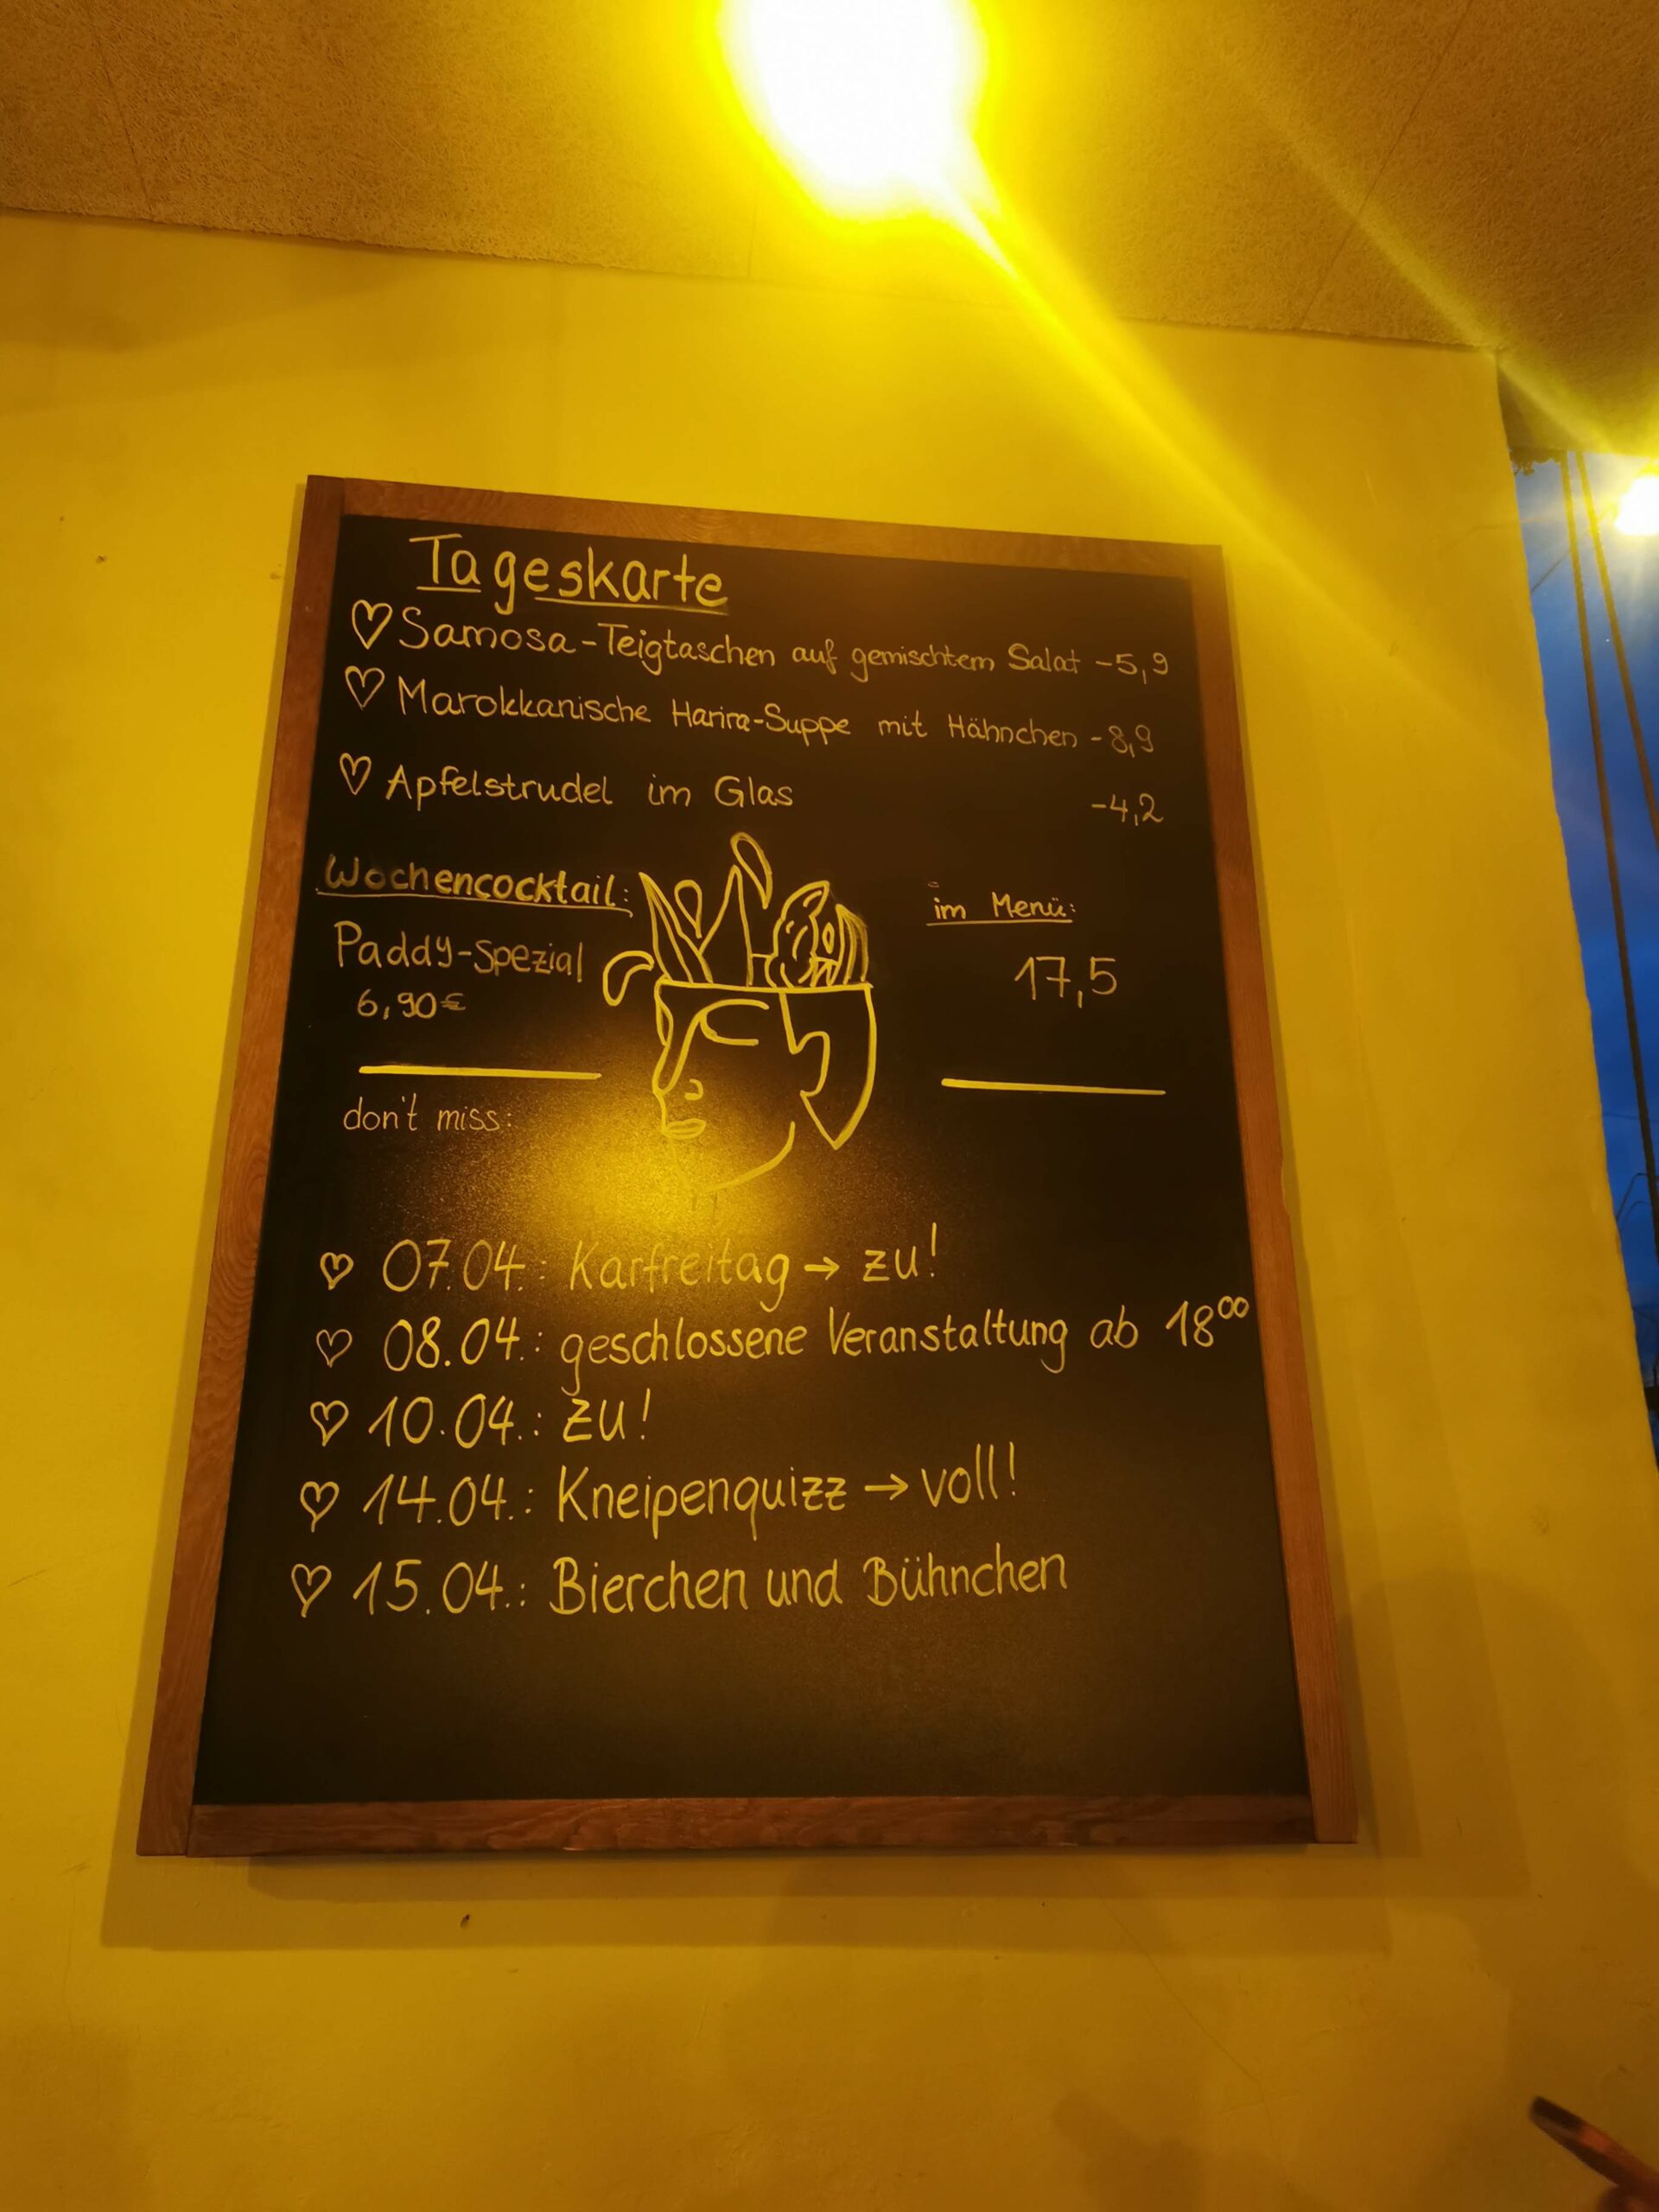 Tageskarte
♡ Samosa-Teigtaschen auf gemischtem Salat -5,9
♡ Marokkanische Harira-Suppe mit Hähnchen -8,9
♡ Apfelstrudel im Glas -4,2
Wochencocktail:
Paddy-Spezial
6,90€
im Menü:
17,5
don't miss:
♡ 07.04.: Karfreitag → zu!
♡ 08.04.: geschlossene Veranstaltung ab 18⁰⁰
♡ 10.04.: zu!
♡ 14.04.: Kneipenquizz → voll!
♡ 15.04.: Bierchen und Bühnchen